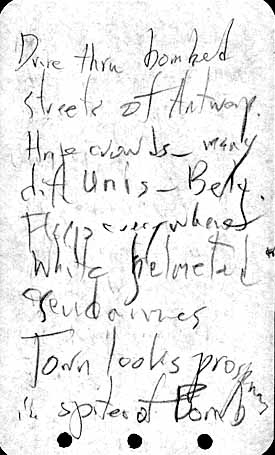 Drive thru bombed
streets of Antwerp.
Huge crowds - many
diff Unis - Belg.
Flags everywhere
White helmeted
Gendarmes
Town looks prosperous
in spite of Bomb